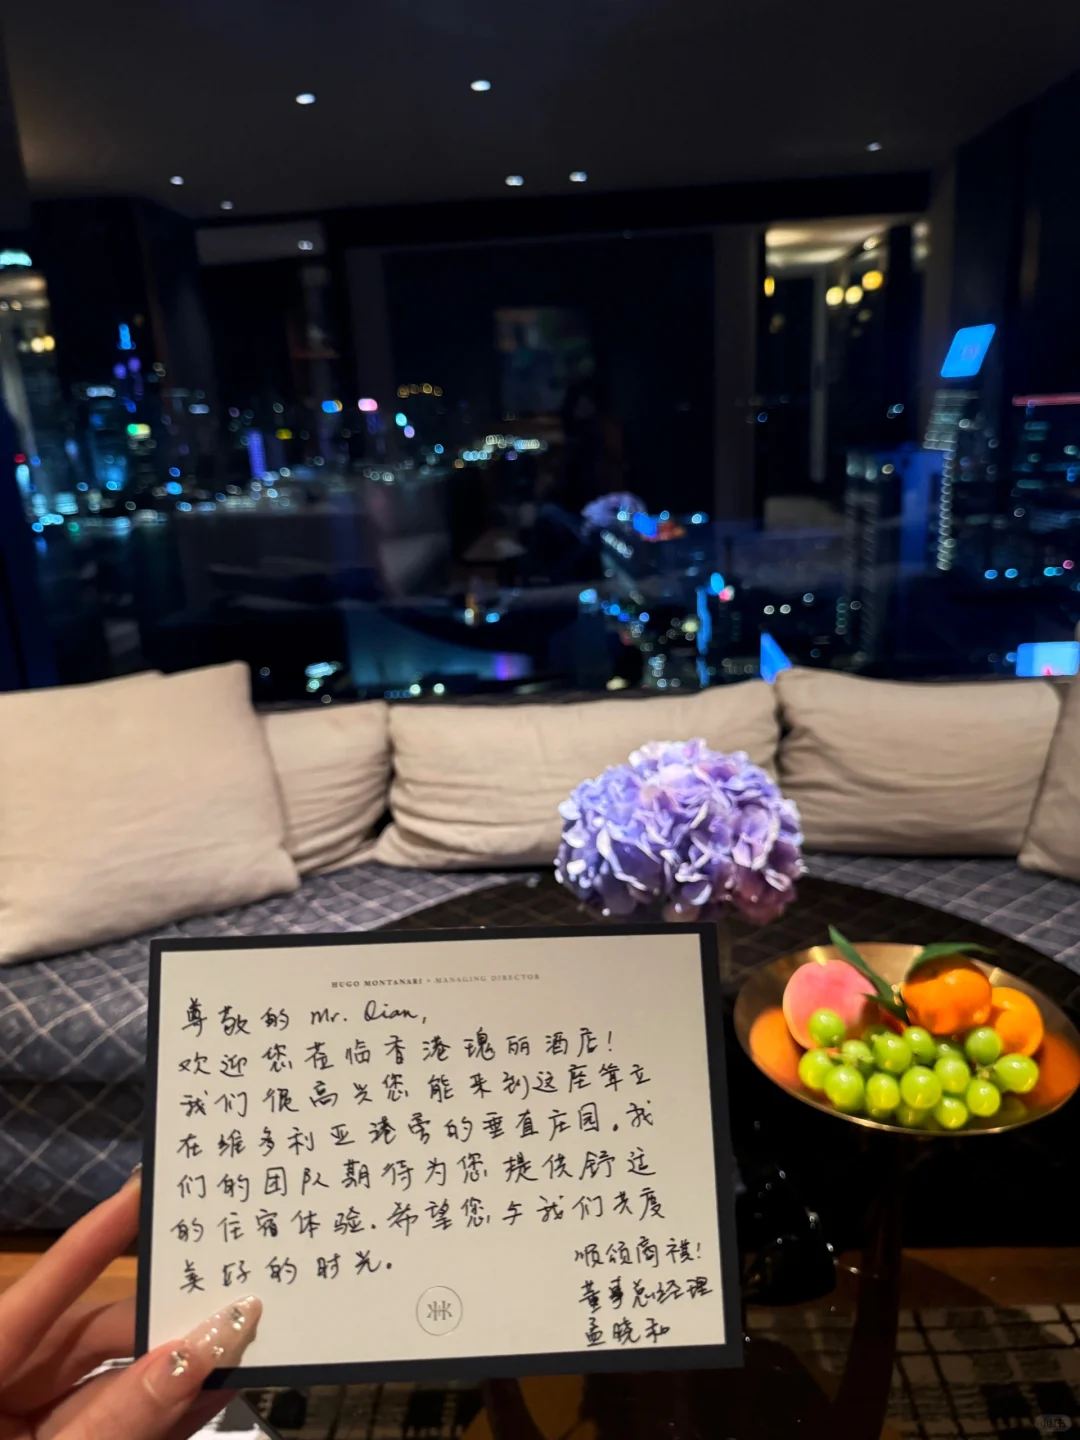 HUGO MONTANARI • MANAGING DIRECTOR
尊敬的 Mr. Qian,
欢迎您莅临香港瑰丽酒店!
我们很高兴您能来到这座耸立
在维多利亚港旁的垂直庄园。我
们的团队期待为您提供舒适
的住宿体验。希望您与我们共度
美好的时光。
顺颂商祺!
董事总经理
孟晓和